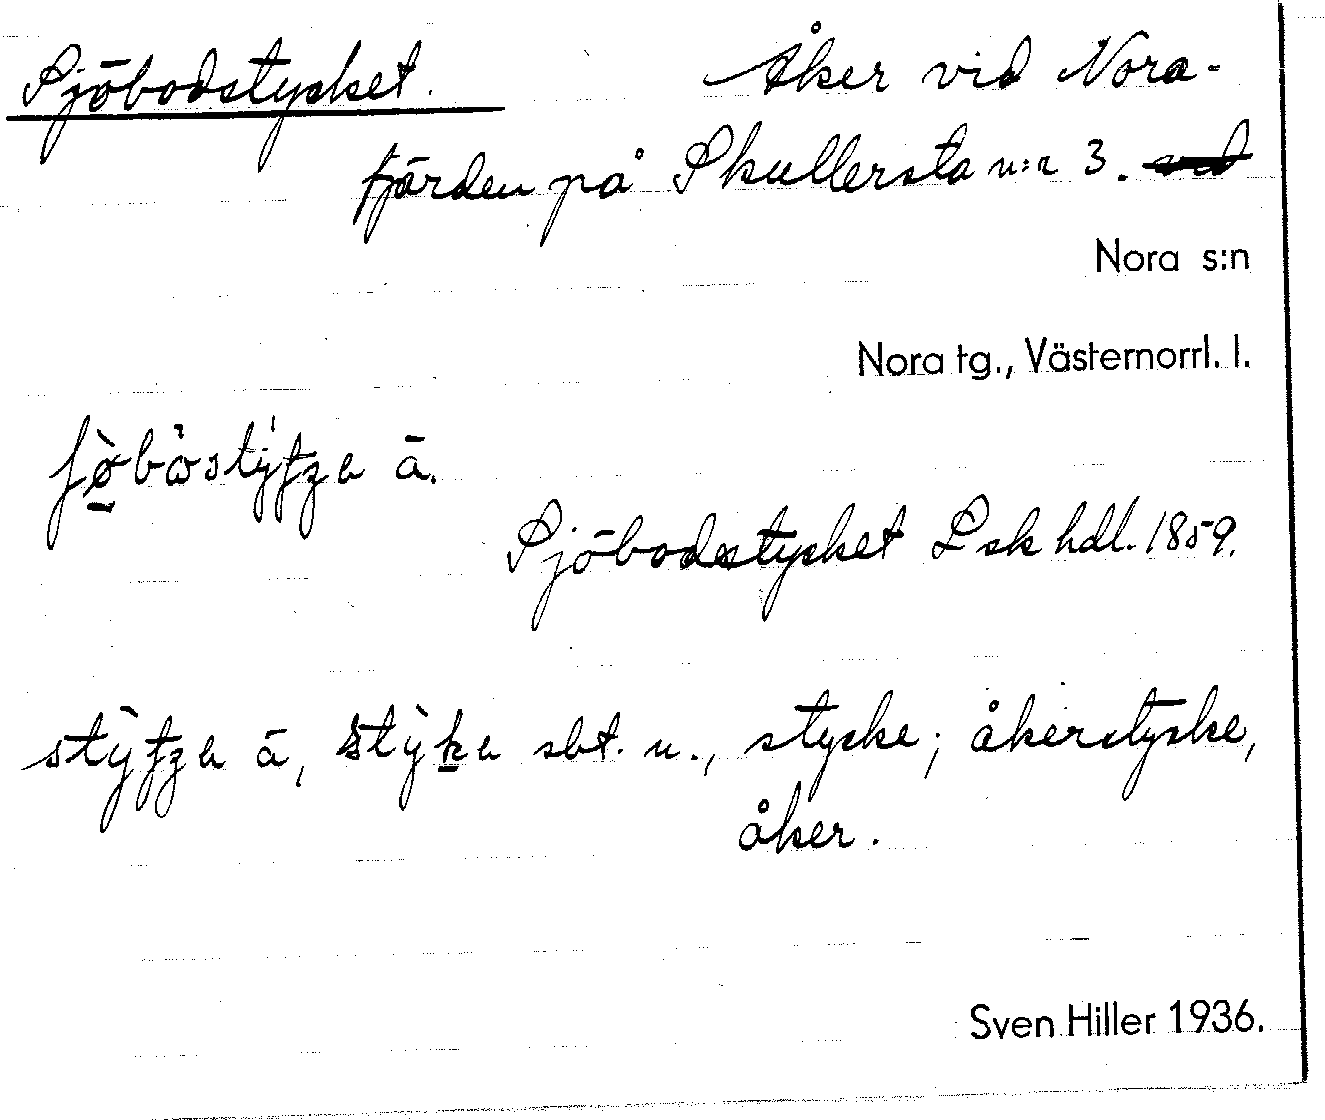 Sjöbodstycket. Åker vid Nora-
fjärden på Skullersta n:r 3.
Nora s:n
Nora tg., Västernorrl. l.
ā.
Sjöbodstycket Lsk hdl. 1859.
ā, sbt. n., stycke; åkerstycke,
åker.
Sven Hiller 1936.